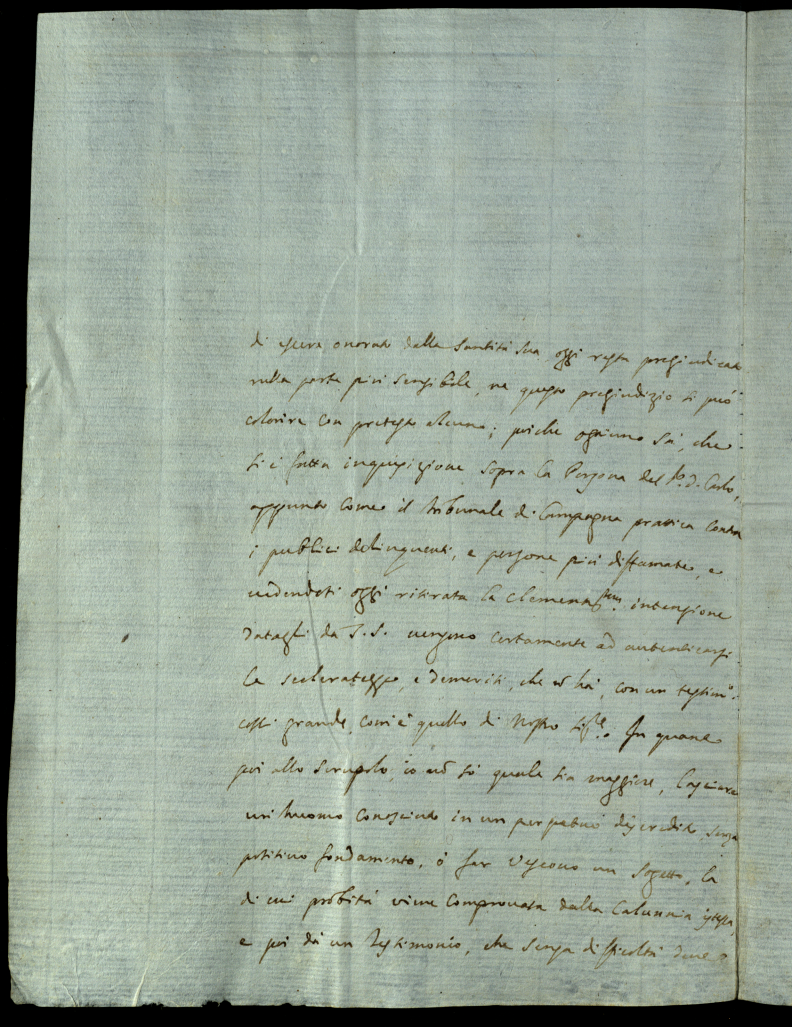 di essere onorato dalla Santità Sua oggi resta pregiudicato
nella parte più sensibile, ne questo pregiudizio si può
colorire con pretesto alcuno; poiche ogn'uno sà, che
si è fatta inquisizione sopra la Persona del Sr. D. Carlo,
appunto come il Tribunale di Campagna prattica contro
i publici delinquenti, e persone più diffamate, e
vedendosi oggi ritirata la clementissma. intenzione
datagli da S. S. vengono certamente ad autenticarsi
le sceleratezze, e demeriti, che nō hà, con un testimo.
così grande, com'è quello di Nostro Sigre. In quanto
poi allo scrupolo, io nō sò quale sia maggiore, lasciare
un huomo conosciuto in un perpetuo discredito senza
positivo fondamento, ò far Vescovo un Sogetto, la
di cui probità viene comprovata dalla Calunnia istessa,
e poi da un Testimonio, che senza difficoltà deve